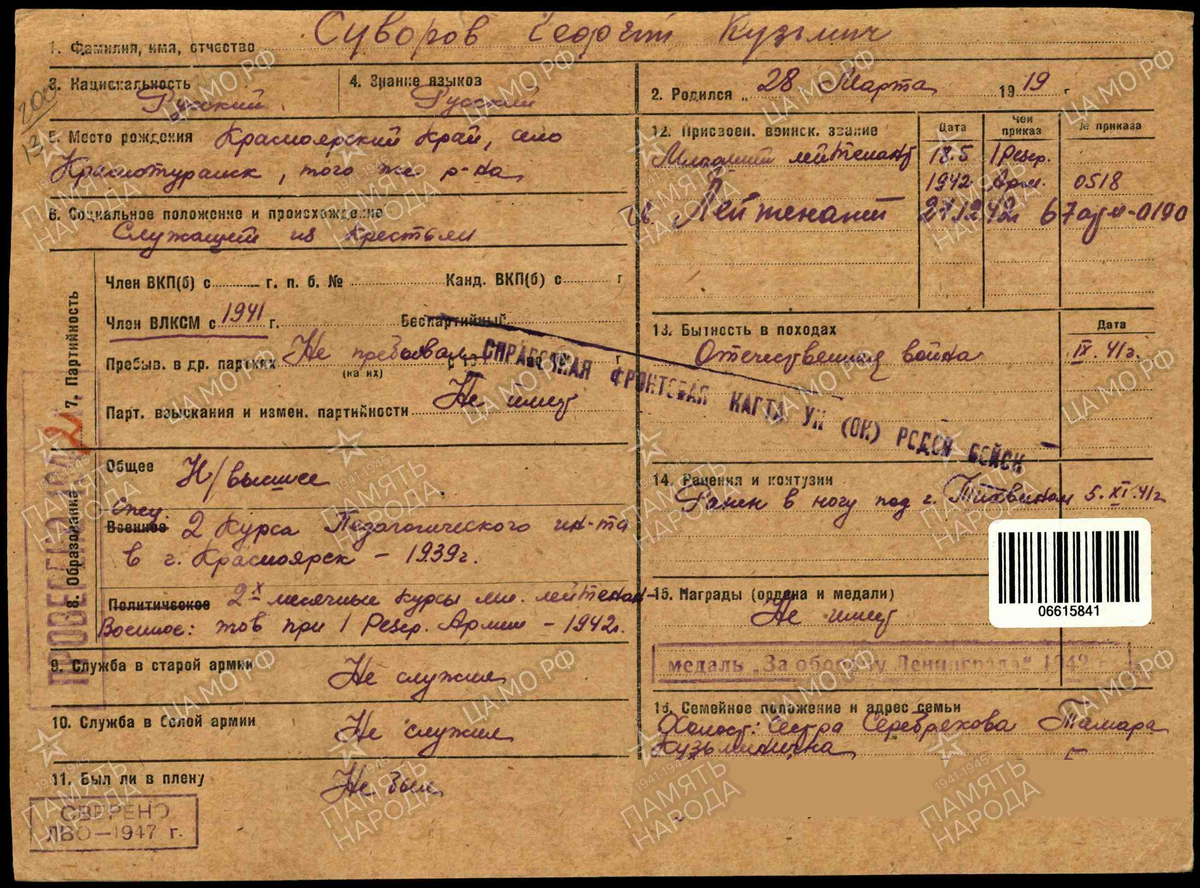 1. Фамилия, имя, отчество Суворов Георгий Кузьмич
3. Национальность Русский
4. Знание языков Русский
2. Родился „ 28 Марта 1919 г
5. Место рождения Красноярский край, село
Краснотуранск, того же р-на
6. Социальное положение и происхождение
Служащий из крестьян
7. Партийность
Член ВКП(б) с г. п. б. № Канд. ВКП(б) с г
Член ВЛКСМ с 1941 г. Беспартийный
Пребыв. в др. партиях Не пребывал с 19 г
(каких)
Парт. взыскания и измен. партийности Не имеет
8. Образование
Общее Н/высшее
Спец.
Военное 2 курса Педагогического ин-та
в г. Красноярск – 1939г.
Политическое 2х месячные курсы мл. лейтенан-
Военное: тов при 1 Резер. Армии – 1942г.
9. Служба в старой армии Не служил
10. Служба в белой армии Не служил
11. Был ли в плену Не был
СВЕРЕНО
ЛВО—1947 г.
ПРОВЕРЕНО 194
2
12. Присвоен. воинск. звание Дата Чей приказ № приказа
Младший лейтенант 18.5 1 Резер.
1942 Арм. 0518
Лейтенант 27.12 42г 67 арм-0190
13. Бытность в походах Дата
Отечественная война IX.41г.
СПРАВОЧНАЯ ФРОНТОВАЯ КАРТА УК (ОК)
14. Ранения и контузии
Ранен в ногу под г. Тихвином 5.XI.41г
06615841
15. Награды (ордена и медали)
Не имеет
медаль „За оборону Ленинграда“ 1942 г.
16. Семейное положение и адрес семьи
Холост: Сестра Серебрехова Тамара
Кузьминична
ЦАМО РФ
1941-1945
ПАМЯТЬ
НАРОДА